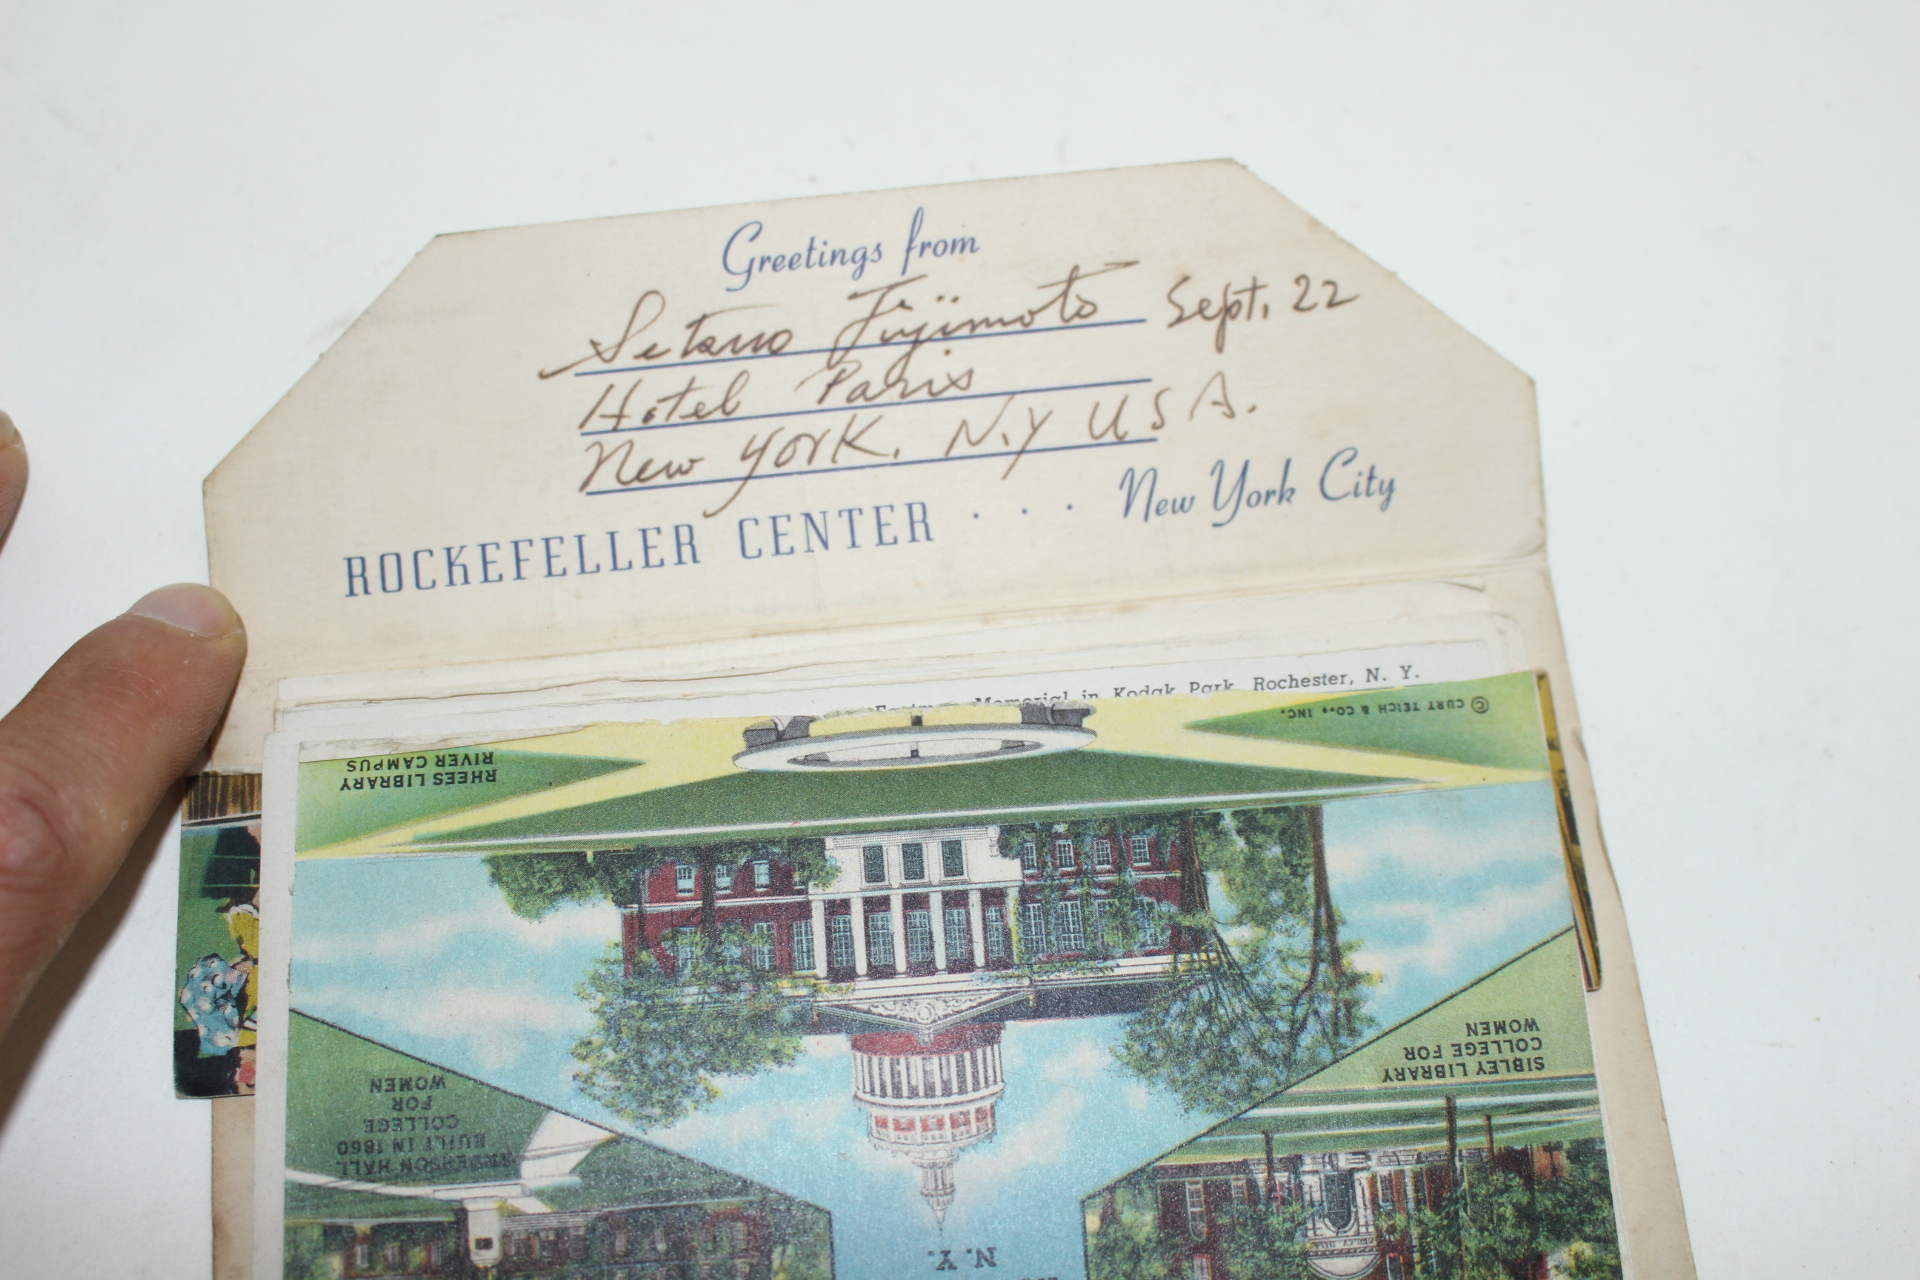 Greetings from
Setsuo Fujimoto Sept. 22
Hotel Paris
New York. N.Y U S A.
ROCKEFELLER CENTER . . . New York City
Memorial in Kodak Park, Rochester, N. Y.
© CURT TEICH & CO., INC.
RHEES LIBRARY
RIVER CAMPUS
SIBLEY LIBRARY
COLLEGE FOR
WOMEN
ANDERSON HALL
BUILT IN 1860
COLLEGE
FOR
WOMEN
N. Y.